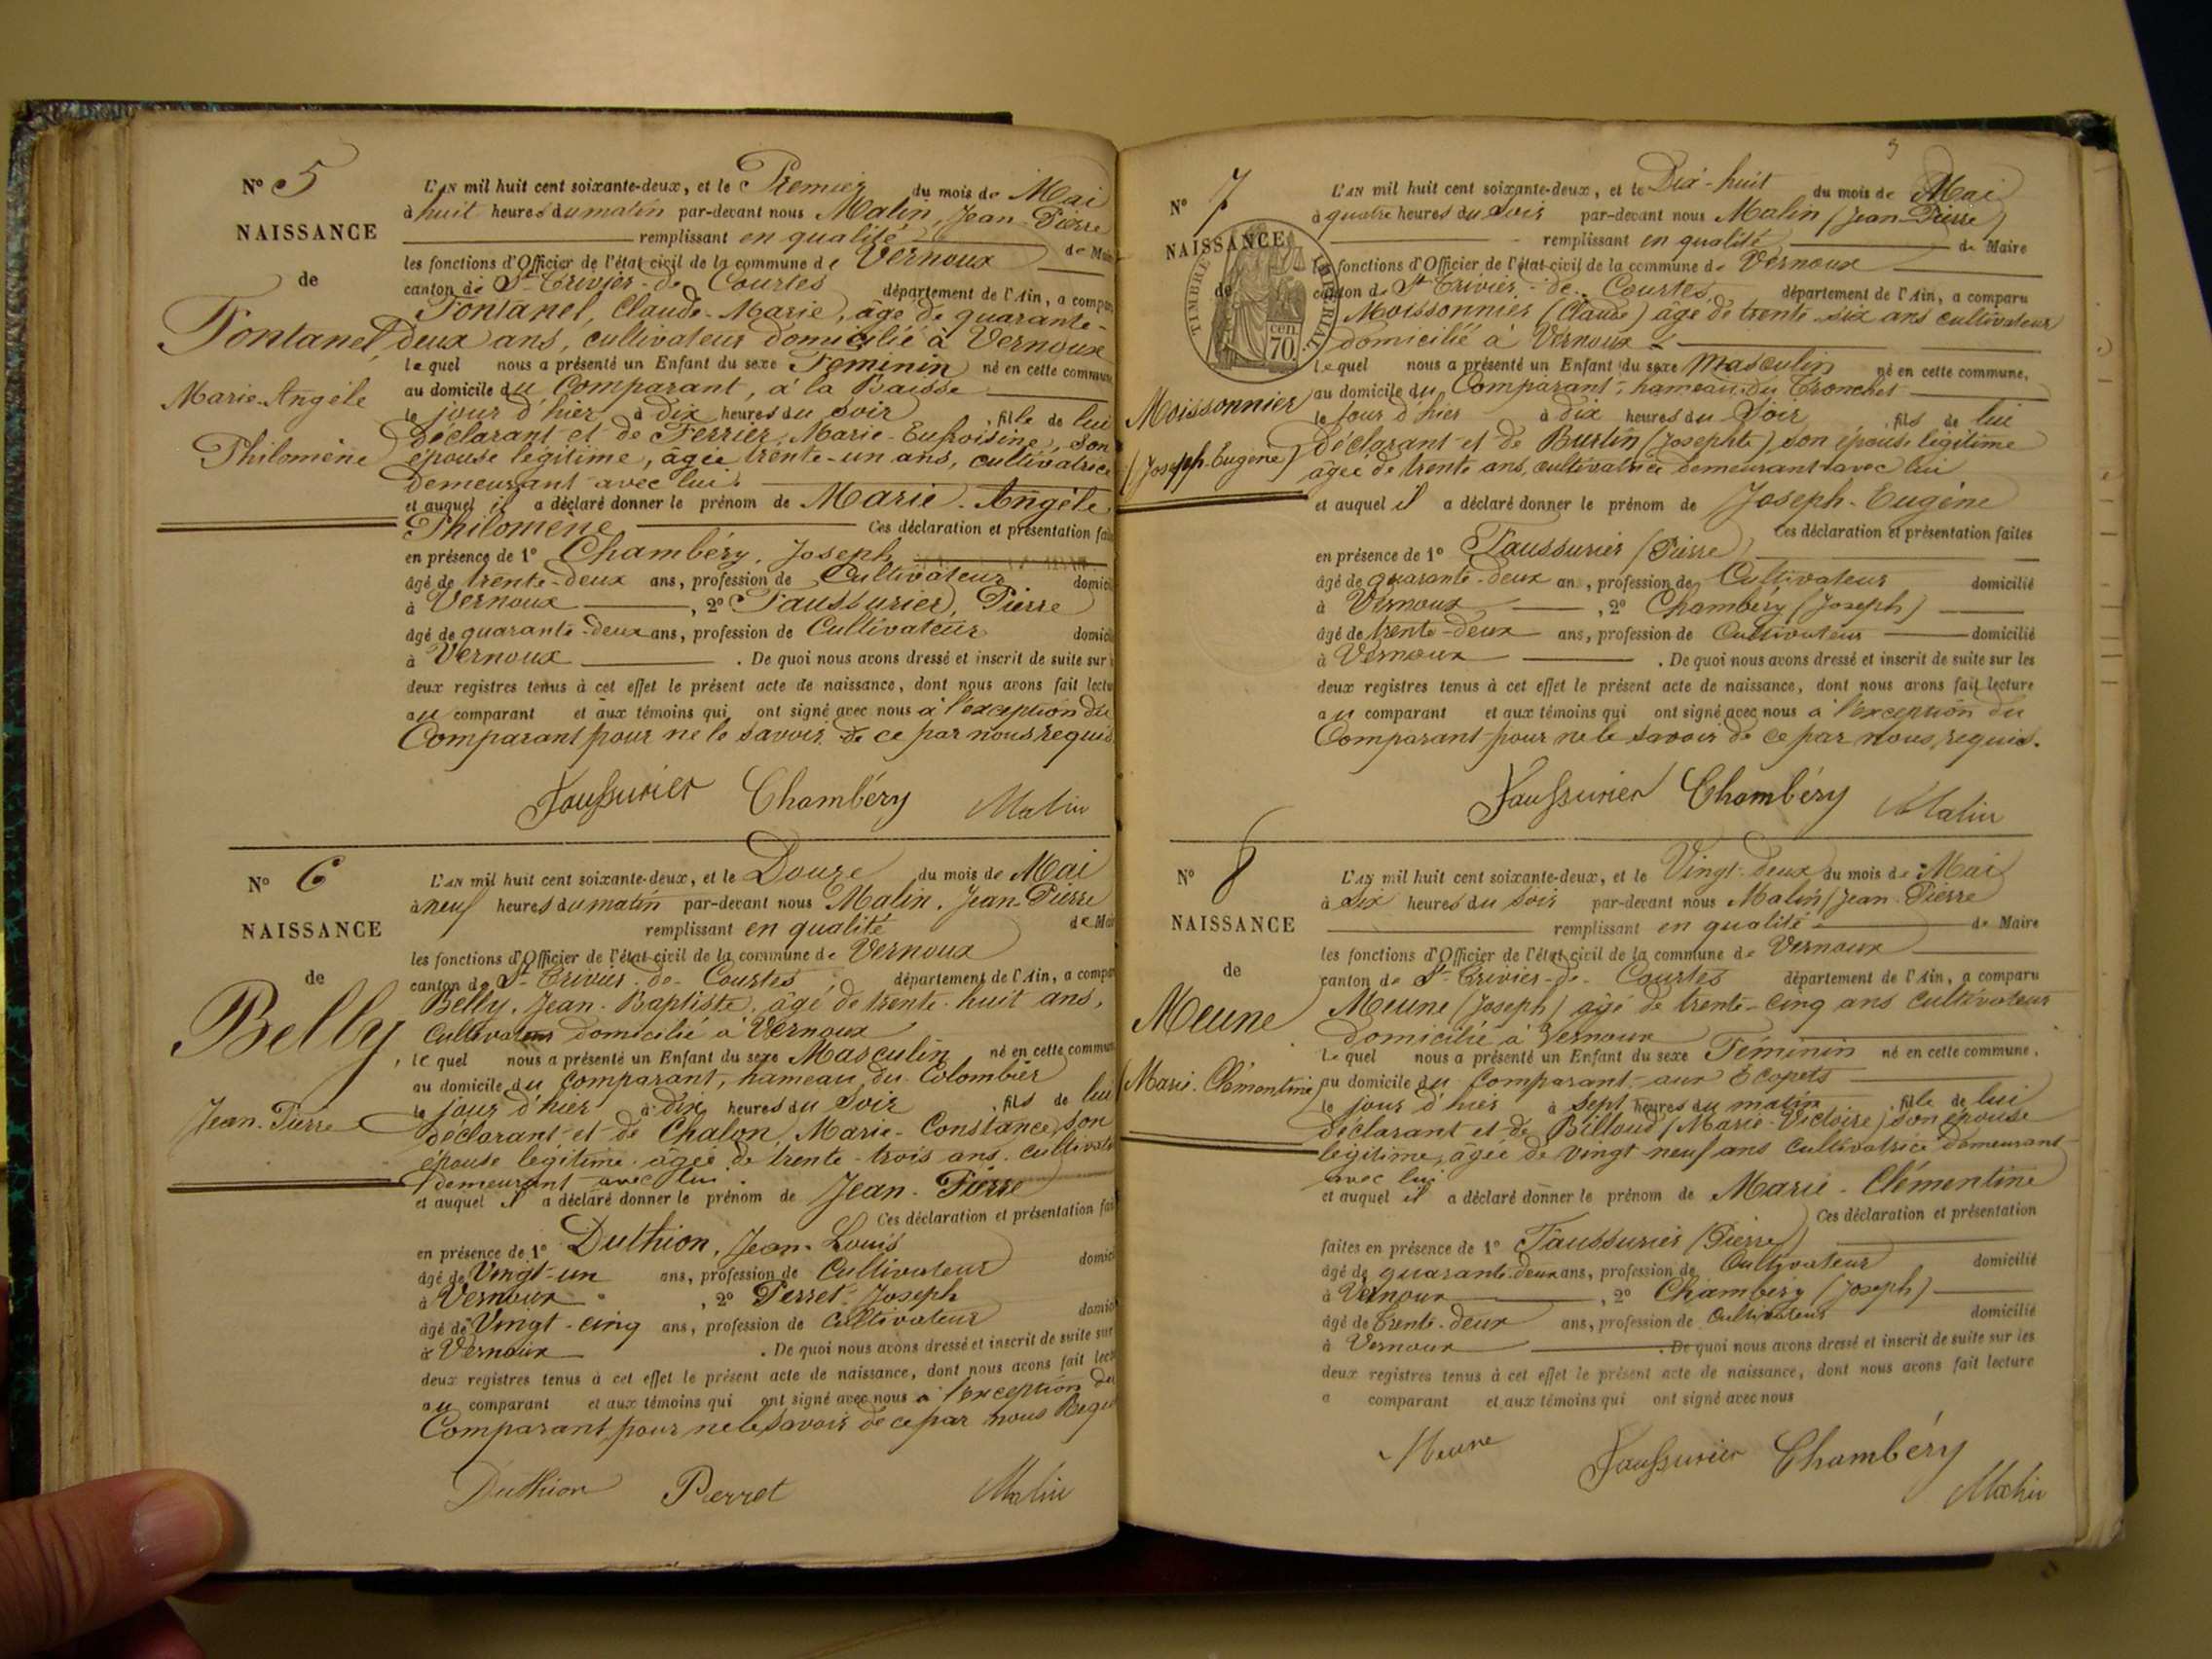 N° 5
NAISSANCE
de
Fontanel,
Marie-Angèle
Philomène
L'AN mil huit cent soixante-deux, et le Premier du mois de Mai
à huit heures du matin par-devant nous Malin, Jean-Pierre
remplissant en qualité de Mai
les fonctions d'Officier de l'état-civil de la commune de Vernoux
canton de St Trivier-de-Courtes département de l'Ain, a compa
Fontanel, Claude-Marie, âgé de quarante-
deux ans, cultivateur domicilié à Vernoux
lequel nous a présenté un Enfant du sexe Feminin né en cette commune
au domicile du Comparant, à la Baisse
le jour d'hier à dix heures du soir, fille de lui
déclarant et de Ferrier, Marie-Eufroisine, son
épouse légitime, âgée trente-un ans, cultivatrice
demeurant avec lui
et auquel il a déclaré donner le prénom de Marie-Angèle
Philomène Ces déclaration et présentation fai
en présence de 1° Chambéry, Joseph
âgé de trente-deux ans, profession de Cultivateur domici
à Vernoux, 2° Taussurier, Pierre
âgé de quarante-deux ans, profession de Cultivateur domici
à Vernoux. De quoi nous avons dressé et inscrit de suite sur
deux registres tenus à cet effet le présent acte de naissance, dont nous avons fait lectu
au comparant et aux témoins qui ont signé avec nous à l'exception du
Comparant pour ne le savoir de ce par nous requis
Taussurier Chambéry Malin
N° 6
NAISSANCE
de
Belly,
Jean-Pierre
L'AN mil huit cent soixante-deux, et le Douze du mois de Mai
à neuf heures du matin par-devant nous Malin, Jean-Pierre
remplissant en qualité de Mai
les fonctions d'Officier de l'état-civil de la commune de Vernoux
canton de St Trivier-de-Courtes département de l'Ain, a compa
Belly, Jean-Baptiste, âgé de trente-huit ans,
cultivateur domicilié à Vernoux
lequel nous a présenté un Enfant du sexe Masculin né en cette commun
au domicile du Comparant, hameau du Colombier
le jour d'hier à dix heures du soir, fils de lui
déclarant et de Chalon, Marie-Constance, son
épouse légitime, âgée de trente-trois ans, cultivat
demeurant avec lui
et auquel il a déclaré donner le prénom de Jean-Pierre
Ces déclaration et présentation fai
en présence de 1° Duthion, Jean-Louis
âgé de Vingt-un ans, profession de Cultivateur domici
à Vernoux, 2° Perret, Joseph
âgé de Vingt-cinq ans, profession de Cultivateur domici
à Vernoux. De quoi nous avons dressé et inscrit de suite sur
deux registres tenus à cet effet le présent acte de naissance, dont nous avons fait lect
au comparant et aux témoins qui ont signé avec nous à l'exception du
Comparant pour ne le savoir de ce par nous Requ
Duthion Perret Malin
3
N° 7
NAISSANCE
de
TIMBRE IMPERIAL
70 cen
Moissonnier
(Joseph-Eugène)
L'AN mil huit cent soixante-deux, et le Dix-huit du mois de Mai
à quatre heures du Soir par-devant nous Malin (Jean-Pierre)
remplissant en qualité de Maire
les fonctions d'Officier de l'état-civil de la commune de Vernoux
canton de St Trivier-de-Courtes département de l'Ain, a comparu
Moissonnier (Claude) âgé de trente-six ans cultivateur
domicilié à Vernoux
lequel nous a présenté un Enfant du sexe Masculin né en cette commune,
au domicile du Comparant, hameau du Tronchet
le jour d'hier à dix heures du Soir, fils de lui
déclarant et de Burtin (Josephte) son épouse légitime
âgée de trente ans, cultivatrice demeurant avec lui
et auquel il a déclaré donner le prénom de Joseph-Eugène
Ces déclaration et présentation faites
en présence de 1° Taussurier (Pierre)
âgé de quarante-deux ans, profession de Cultivateur domicilié
à Vernoux, 2° Chambéry (Joseph)
âgé de trente-deux ans, profession de Cultivateur domicilié
à Vernoux. De quoi nous avons dressé et inscrit de suite sur les
deux registres tenus à cet effet le présent acte de naissance, dont nous avons fait lecture
au comparant et aux témoins qui ont signé avec nous à l'exception du
Comparant pour ne le savoir de ce par nous requis.
Taussurier Chambéry Malin
N° 8
NAISSANCE
de
Meune
(Marie-Clémentine
L'AN mil huit cent soixante-deux, et le Vingt-deux du mois de Mai
à Six heures du soir par-devant nous Malin (Jean-Pierre
remplissant en qualité de Maire
les fonctions d'Officier de l'état-civil de la commune de Vernoux
canton de St Trivier-de-Courtes département de l'Ain, a comparu
Meune (Joseph) âgé de trente-cinq ans cultivateur
domicilié à Vernoux
lequel nous a présenté un Enfant du sexe Féminin né en cette commune,
au domicile du Comparant, aux Ecopets
le jour d'hier à sept heures du matin, fille de lui
déclarant et de Billoud (Marie-Victoire) son épouse
légitime, âgée de vingt-neuf ans cultivatrice demeurant
avec lui
et auquel il a déclaré donner le prénom de Marie-Clémentine
Ces déclaration et présentation
faites en présence de 1° Taussurier (Pierre)
âgé de quarante-deux ans, profession de Cultivateur domicilié
à Vernoux, 2° Chambéry (Joseph)
âgé de trente-deux ans, profession de Cultivateur domicilié
à Vernoux. De quoi nous avons dressé et inscrit de suite sur les
deux registres tenus à cet effet le présent acte de naissance, dont nous avons fait lecture
a comparant et aux témoins qui ont signé avec nous
Meune Taussurier Chambéry
Malin